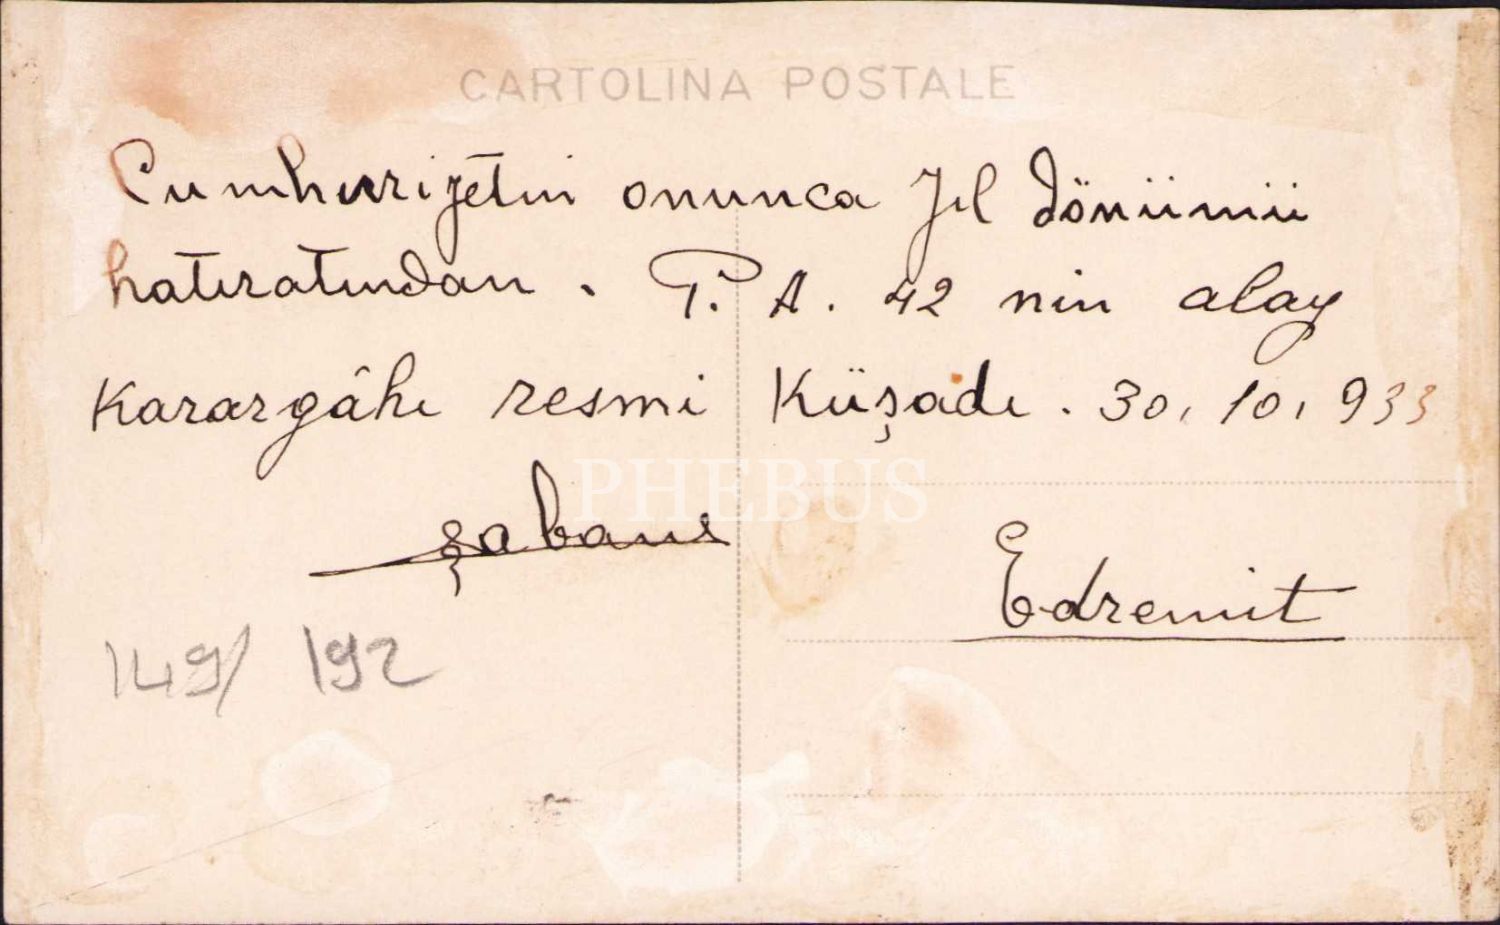 CARTOLINA POSTALE
Cumhurrijetin onunca Jıl dönümü
hatıratından. P. A. 42 nin alay
Karargâhı resmi Küşadı. 30, 10, 933
PHEBUS
şaban
Edremit
149/ 192